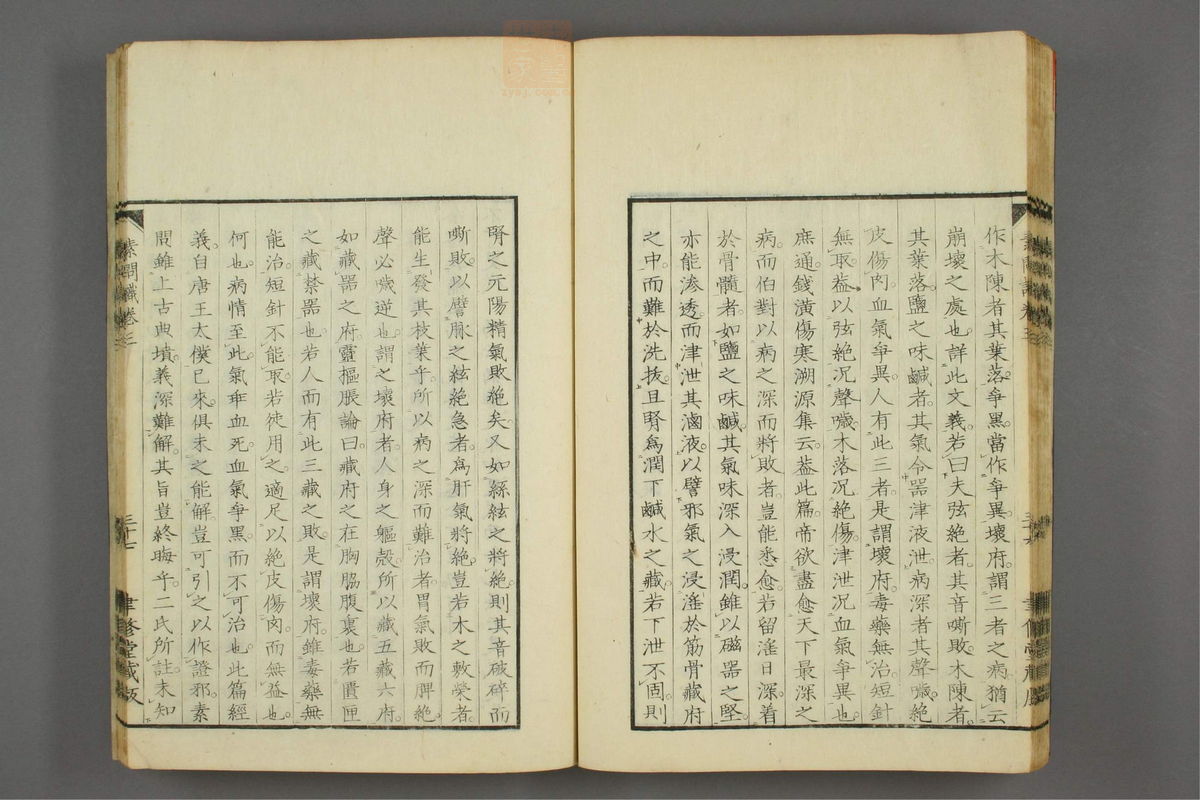 作木陳者其葉落爭黑當作爭異壞府謂三者之病猶云
崩壞之處也詳此文義若曰夫弦絕者其音嘶敗木陳者
其葉落鹽之味鹹者其氣令器津液泄病深者其聲噦絕
皮傷肉血氣爭異人有此三者是謂壞府毒藥無治短針
無取葢以弦絕況聲噦木落況絕傷津泄況血氣爭異也
庶通錢潢傷寒溯源集云葢此篇帝欲盡愈天下最深之
病而伯對以病之深而將敗者豈能悉愈若留淫日深着
於骨髓者如鹽之味鹹其氣味深入浸潤雖以磁器之堅
亦能滲透而津泄其滷液以譬邪氣之浸淫於筋骨藏府
之中而難於洗拔且腎為潤下鹹水之藏若下泄不固則
腎之元陽精氣敗絕矣又如絲絃之將絕則其音破碎而
嘶敗以譬脈之絃絕急者為肝氣將絕豈若木之敷榮者
能生發其枝葉乎所以病之深而難治者胃氣敗而脾絕
聲必噦逆也謂之壞府者人身之軀殼所以藏五藏六府
如藏器之府靈樞脹論曰藏府之在胸脇腹裏也若匱匣
之藏禁器也若人而有此三藏之敗是謂壞府雖毒藥無
能治短針不能取若徒用之適足以絕皮傷肉而無益也
何也病情至此氣乖血死血氣爭黑而不可治也此篇經
義自唐王太僕已來俱未之能解豈可引之以作證邪素
問雖上古典墳義深難解其旨豈終晦乎二氏所註未知
素問識卷三
三十七
聿修堂藏板